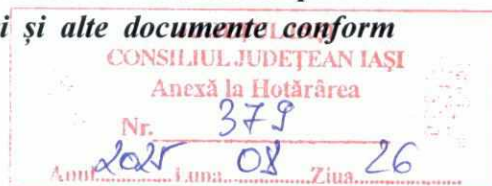 i și alte documente conform
CONSILIUL JUDEȚEAN IAȘI
Anexă la Hotărârea
Nr. 379
Anul 2025 Luna 08 Ziua 26